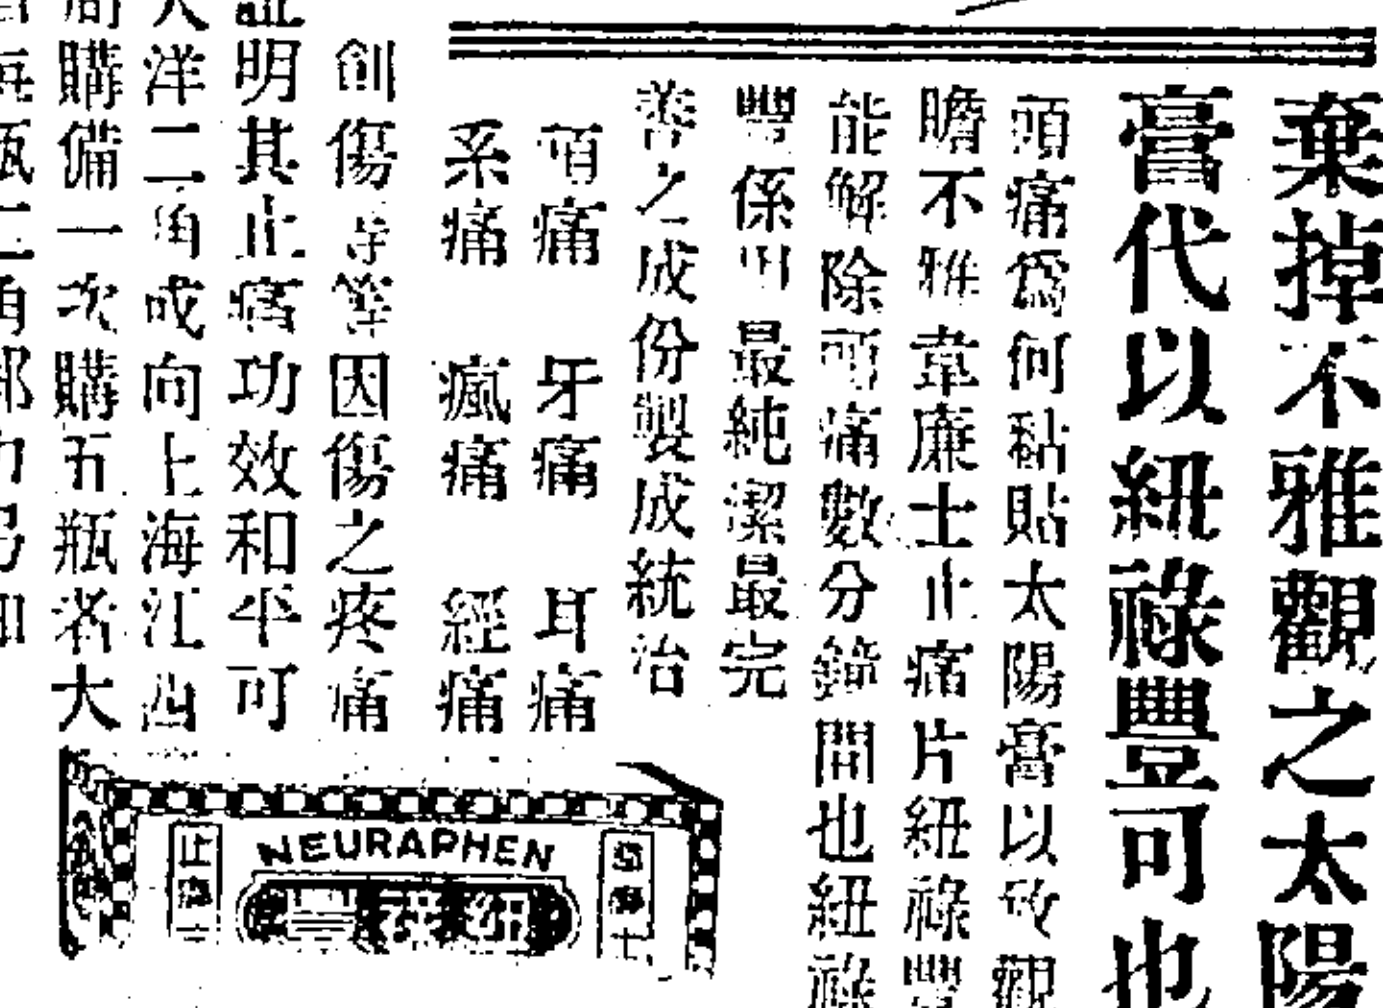 棄掉不雅觀之太陽
膏代以紐祿豐可也
頭痛爲何黏貼太陽膏以致觀
瞻不雅韋廉士止痛片紐祿豐
能解除頭痛數分鐘間也紐祿
豐係用最純潔最完
善之成份製成統治
頭痛 牙痛 耳痛
系痛 瘋痛 經痛
創傷等等因傷之疼痛
証明其止痛功效和平可
大洋二角或向上海江西
購備一次購五瓶者大
每瓶二角郵力
NEURAPHEN
止痛